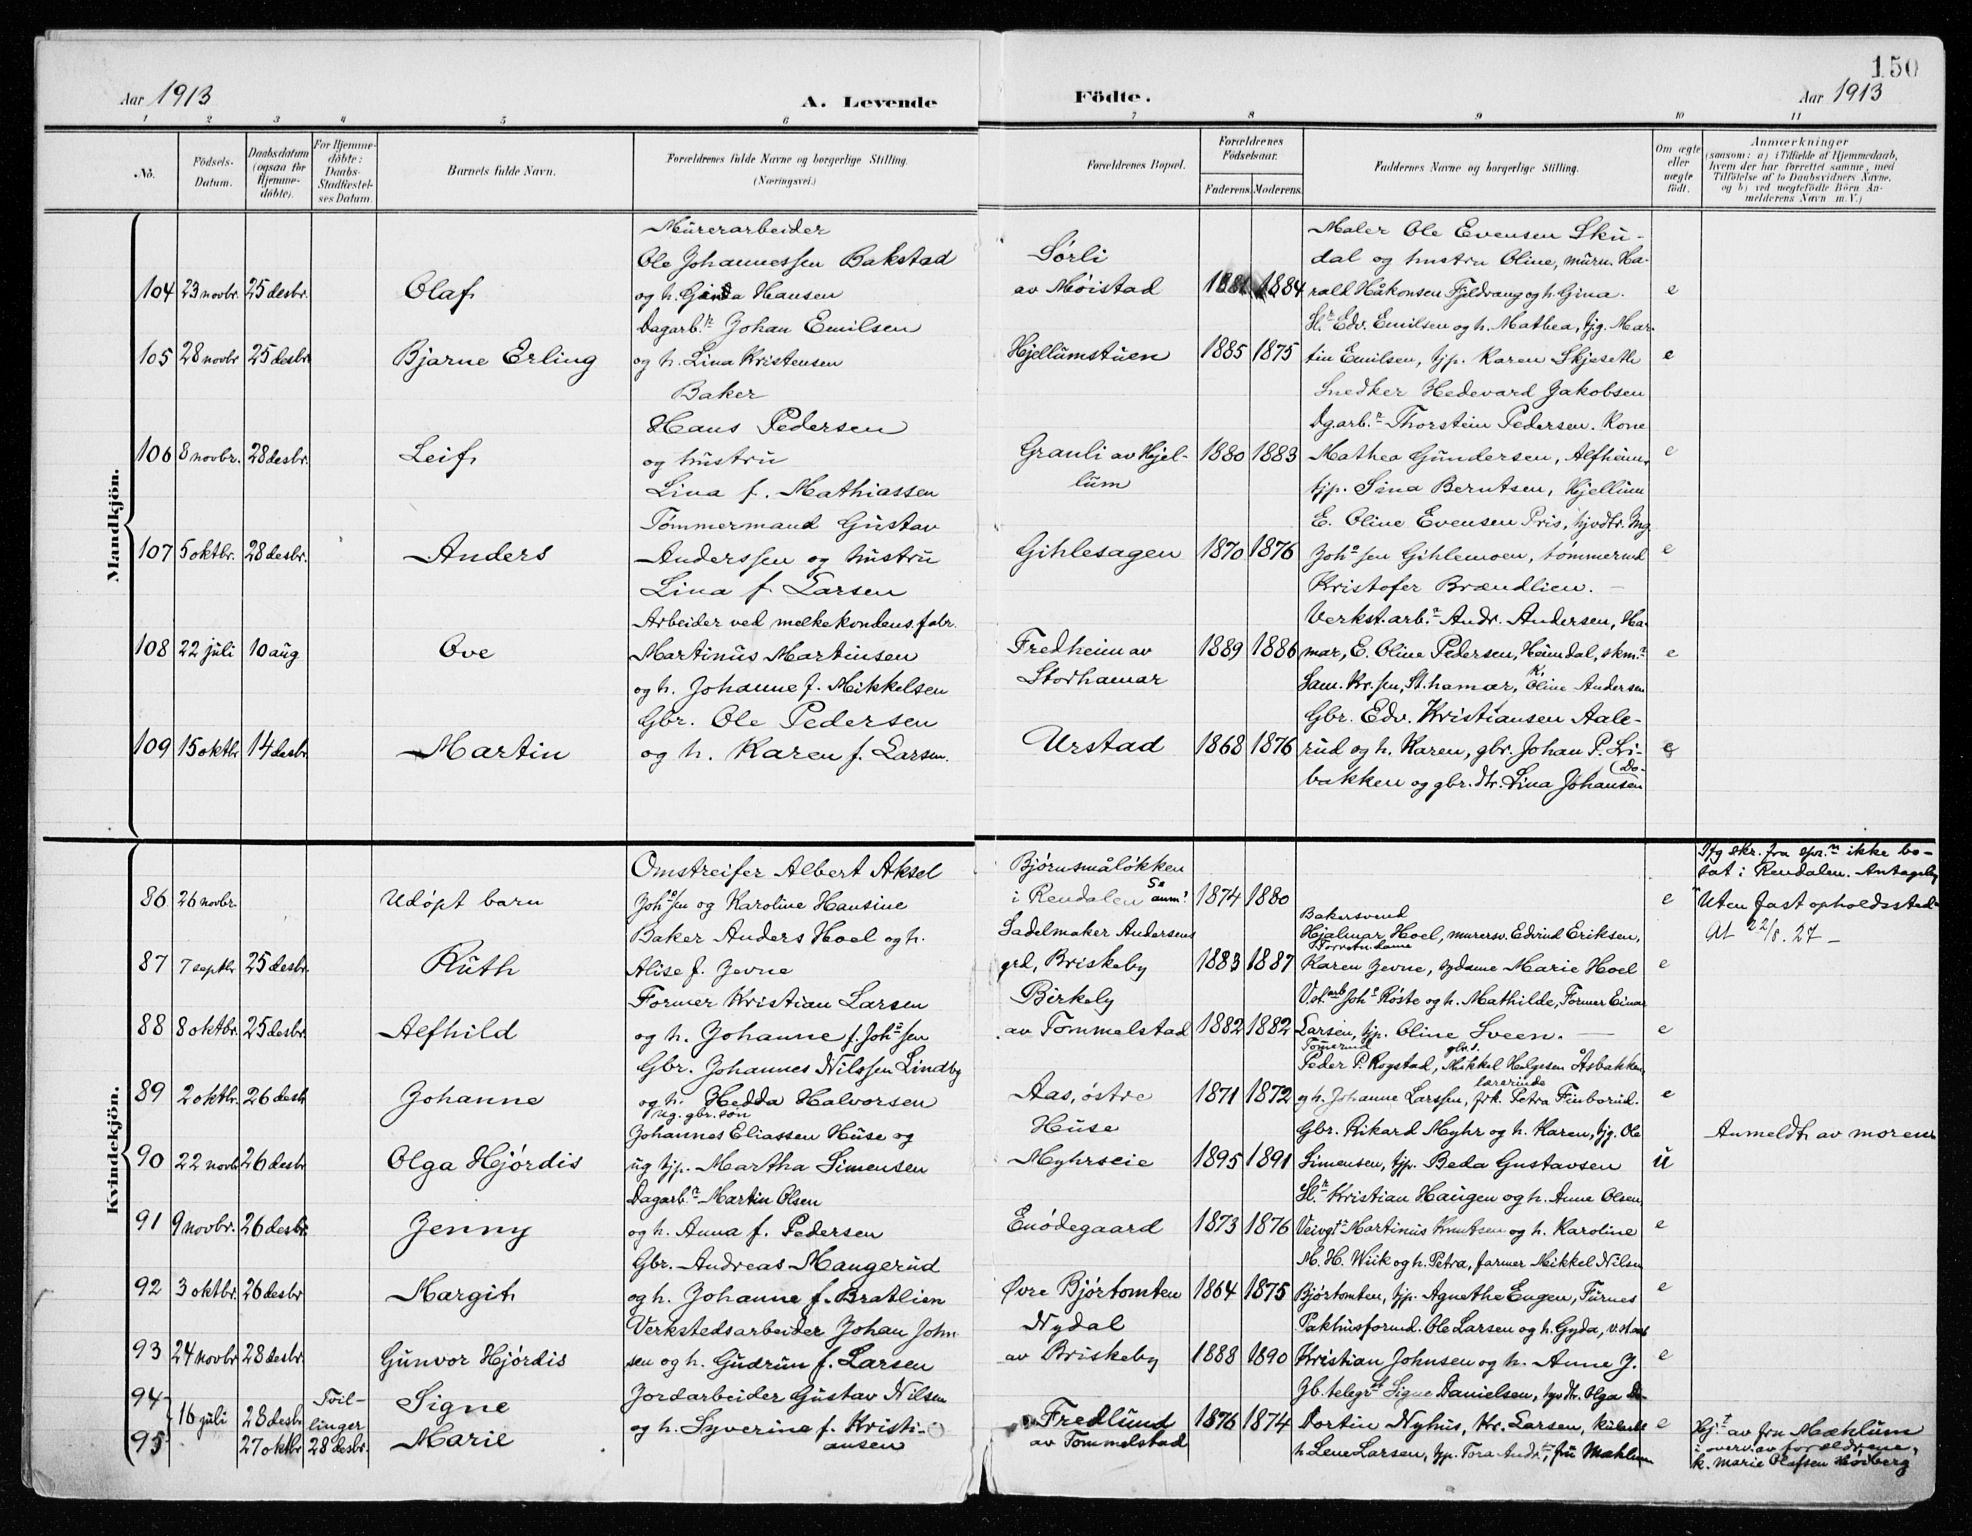 150
Aar 1913
A. Levende
Födte.
Aar 1913
1 2 3 4 5 6 7 8 9 10 11
No.
Födsels-Datum.
Daabsdatum (ogsaa for Hjemmedöbte).
For Hjemmedöbte: Daabs-Stadfæstelses Datum.
Barnets fulde Navn.
Forældrenes fulde Navne og borgerlige Stilling.
(Næringsvei.)
Forældrenes Bopæl.
Forældrenes Födselsaar.
Faderens. Moderens.
Faddernes Navne og borgerlige Stilling.
Om ægte eller uægte födt.
Anmærkninger
(saasom: a) i Tilfælde af Hjemmedaab,
hvem der har forrettet samme, med
Tilföielse af to Daabsvidners Navne,
og b) ved uægtefödte Börn Anmelderens Navn m. V.)
Mandkjön.
104 23 novbr. 25 desbr. Olaf
Murerarbeider
Ole Johannessen Bakstad
og h. Hansen
Sørli
av Møistad
1881 1884
Maler Ole Evensen Sku-
dal og hustru Oline, murn. Ha-
rald Håkonsen Fjeldvang og h. Gina.
e
105 28 novbr 25 desbr Bjarne Erling
Dagarb.r Johan Emilsen
og h. Lina Kristensen
Hjellumstuen
1885 1875
Sl.r Edv. Emilsen og h. Mathea, tjg. Mar-
tin Emilsen, tjp. Karen Skjeseth
e
106 8 novbr. 28 desbr. Leif
Baker
Hans Pedersen
og hustru
Lina f. Mathiassen
Granli av Hjel-
lum
1880 1883
Snedker Hedevard Jakobsen
Dg.arb.r Thorstein Pedersen. Kone
Mathea Gundersen, Alfheim,
tjp. Sina Berntsen, Hjellum
e
107 5 oktbr. 28 desbr. Anders
Tømmermand Gustav
Anderssen og hustru
Lina f. Larsen
Gihlesagen
1870 1876
E. Oline Evensen Pris,
Joh.s sen Gihlemoen, tømmermd
Kristofer Brændlien.
e
108 22 juli 10 aug Ove
Arbeider ved melkekondens.fabr.
Martinus Martinsen
og h. Johanne f. Mikkelsen
Fredheim av
Storhamar
1889 1886
Verkst.arb.r Andr. Andersen, Ha-
mar, E. Oline Pedersen, Heimdal, skm.r
Sam. Kr.sen, St.hamar, K. Oline Andersen
e
109 15 oktbr 14 desbr Martin
Gbr. Ole Pedersen
og h. Karen f. Larsen.
Urstad
1868 1876
Gbr. Edv. Kristiansen Aale-
rud og h. Karen, gbr. Johan P. Li-
bakken og gbr.dtr. Lina Johansen (Do-
e
Kvindekjön.
86 26 novbr. Udøpt barn
Omstreifer Albert Aksel
Joh.s sen og Karoline Hansine
Bjørnsmåløkken
i Rendalen Se anm!
1874 1880
e
Ifg skr. fra spr.n ikke bo-
sat i Rendalen. Antagelig
"Uten fast opholdssted"
At 22/8. 27 –
87 7 septbr 25 desbr. Ruth
Baker Anders Hoel og h.
Alise f. Jevne
Sadelmaker Andersens
grd, Briskeby
1883 1887
Bakersvend
Hjalmar Hoel, murersv. Edvind Eriksen,
Karen Jevne, sydame Marie Hoel
e
88 8 oktbr. 25 desbr. Alfhild
Former Kristian Larsen
og h. Johanne f. Joh.s sen
Birkely
av Tommelstad
1882 1882
V.st.arb Joh.s Røste og h. Mathilde, Former Einar
Larsen, tjp. Oline Sveen.
e
89 2 oktbr. 26 desb Johanne
Gbr. Johannes Nilssen Lindby
og h. Hedda Halvorsen
Aas, østre
1871 1872
Tømrmd gbr.s.
Peder P. Rogstad, Mikkel Helgesen Åsbakken
og h. Johanne Larssen, frk. lærerinde Petra Finborud.
e
90 22 novb 26 desbr Olga Hjórdis
ug. gbr.søn
Johannes Eliassen Huse og
ug tjp. Martha Simensen
Huse
Myhrseie
1895 1891
Gbr. Rikard Myhr og h. Karen, tjg. Ole
Simensen, tjp. Beda Gustavsen
ú
Anmeldt av moren
91 9 novbr. 26 desbr. Jenny
Dagarb.r Martin Olsen
og h. Anna f. Pedersen
Enódegaard
1873 1876
Sl.r Kristian Haugen og h. Anne Olsen,
Veivgt.r Martinus Knutsen og h. Karoline
e
92 3 oktbr. 26 desbr Margit
Gbr. Andreas Maugerud
og h. Johanne f. Bratlien
Øvre Bjørtomten
1864 1875
M. H. Wiik og h. Petra, farmer Mikkel Nilsen
Bjørtomten, tjp. Agnethe Engen, Furnes
e
93 24 novbr 28 desbr. Gunvor Hjórdis
Verkstedsarbeider Johan John-
sen og h. Gudrun f. Larsen
Nydal
av Briskeby
1888 1890
Pakhusformd. Ole Larsen og h. Gyda,
Kristian Johnsen og h. Anne J.
e
94 Signe
95 Marie
16 juli 28 desbr 27 oktbr
Tvil-
linger
28 desbr.
Jordarbeider Gustav Nilsen
og h. Syverine f. Kristi-
ansen
Fredlund
av Tommelstad
1876 1874
Jb. telegr.st Signe Danielsen, Olga Da-
Dortin Nyhus, Kr. Larsen,
h Lene Larsen, tjp. Tora Andr.sen, fru Mæhlum
e
Hj.t av fru Mæhlum
i overv. av forældrene,
k. Marie Olafsen Høiberg